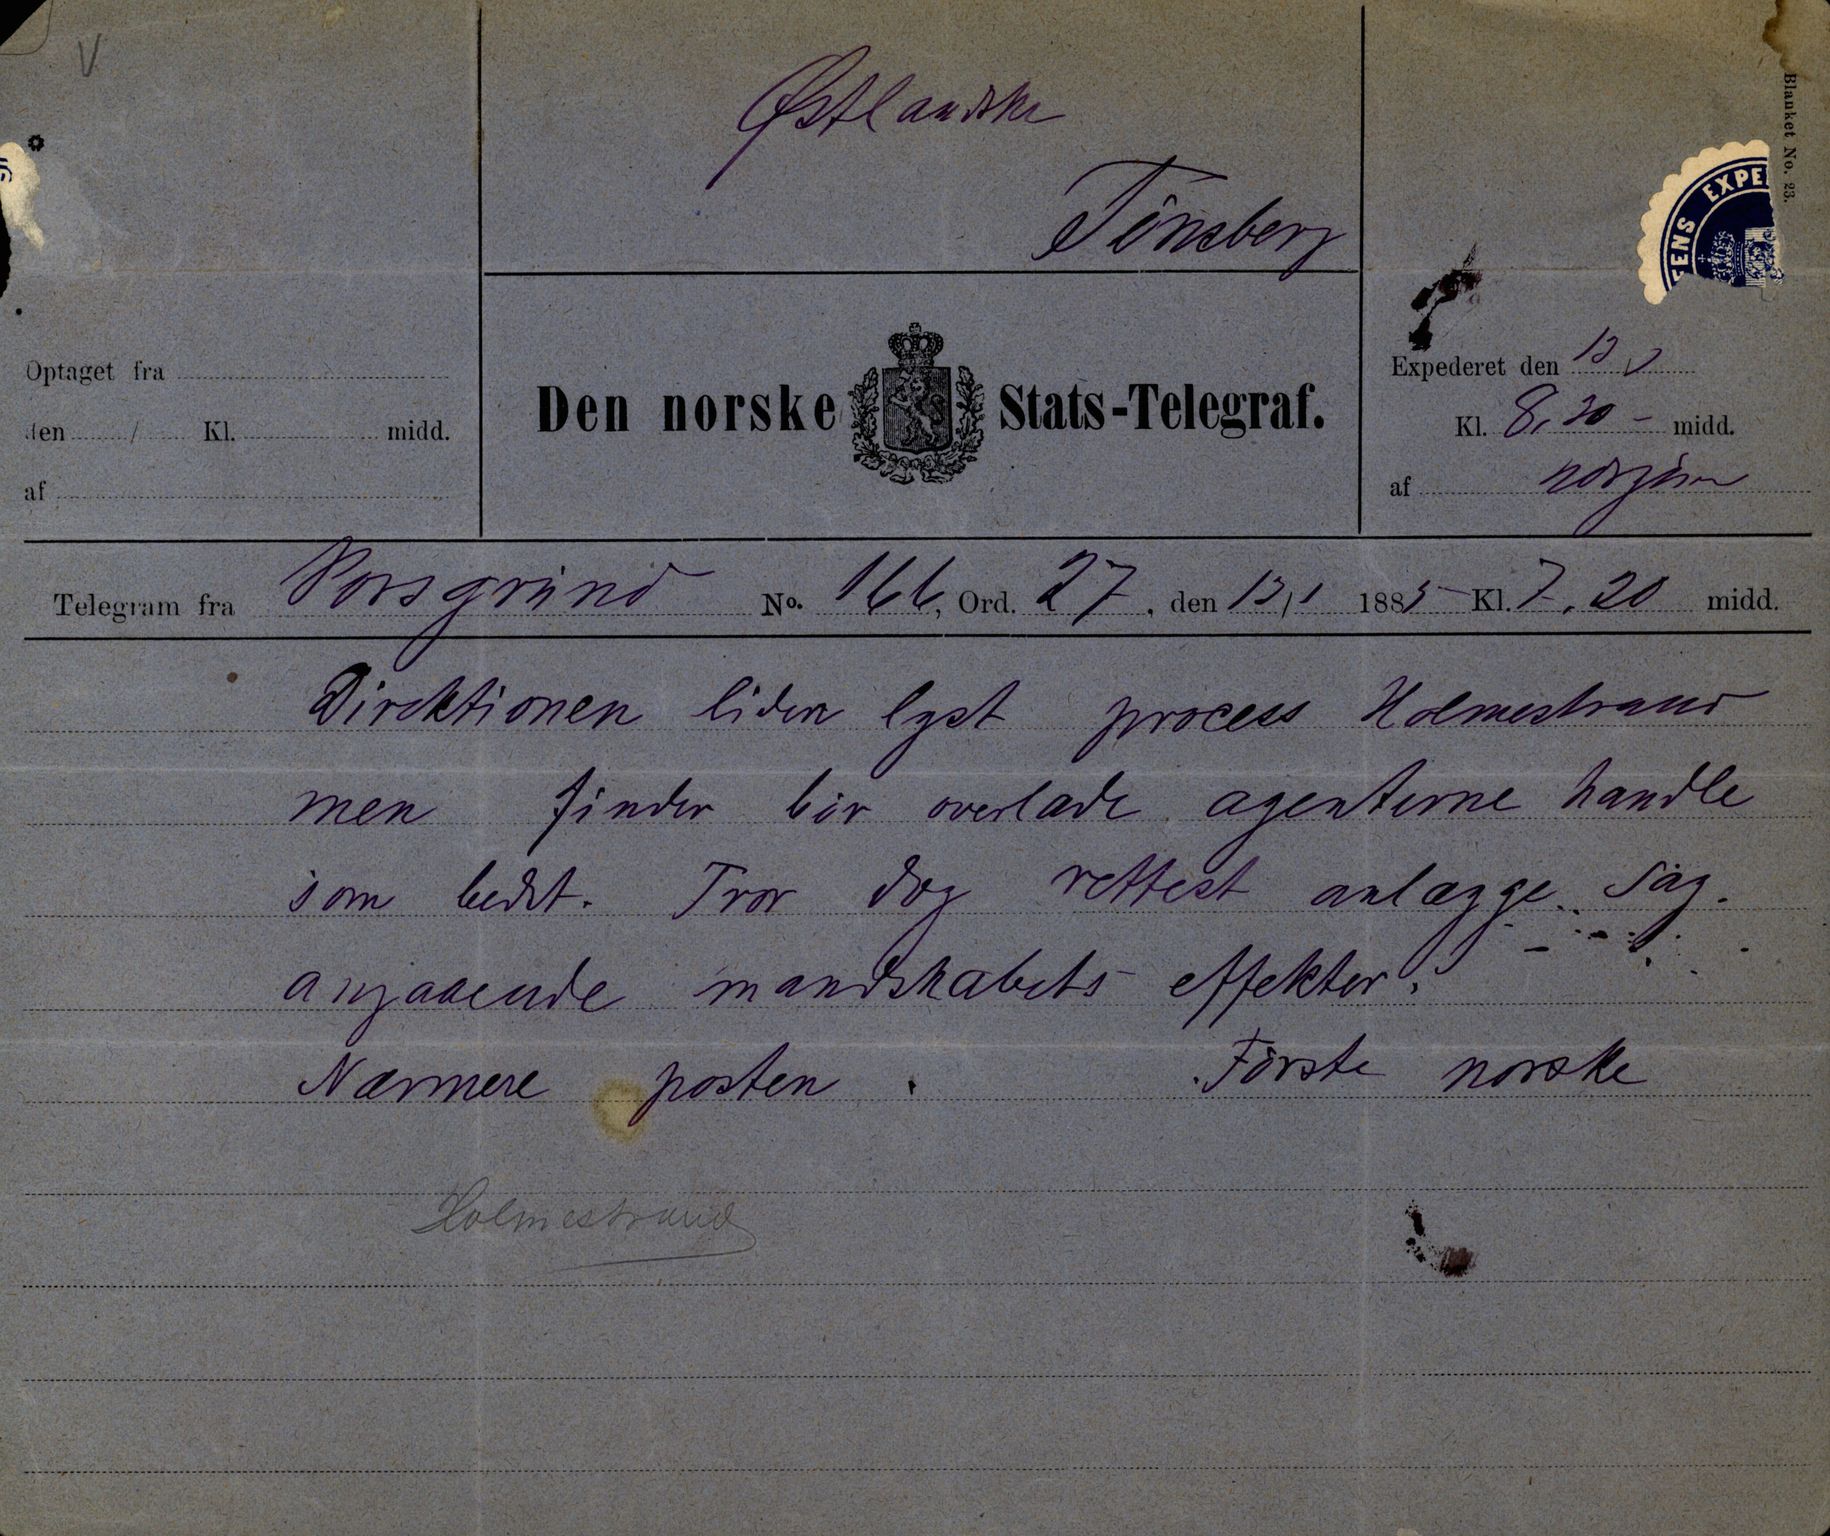 V
Østlandske
Tönsberg
Blanket No. 23.
FENS EXPE
Optaget fra
den / Kl. midd.
af
Den norske Stats-Telegraf.
Expederet den 13
Kl. 8,20 - midd.
af
Telegram fra Porsgrund No. 166, Ord. 27, den 13/1 1885 Kl. 7.20 midd.
Direktionen liden lyst process Holmestrand
men finder bör overlade agenterne handle
som bedst. Tror dog rettest anlægge sag.
angaaende mandskabets effekter.
Nærmere posten. Förste norske
Holmestrand